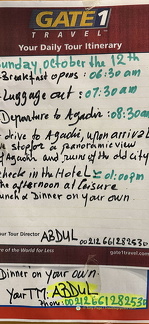 GATE 1
TRAVEL
Your Daily Tour Itinerary
Sunday, october the 12th
-Breakfast opens : 06:30 am
-Luggage out : 07:30 am
-Departure to Agadir : 08:30am
- drive to Agadir, upon arrival
we stop for a panoramic view
of Agadir and ruins of the old city
check in the Hotel ± 01:00pm
the afternoon at leisure
Lunch & Dinner on your own
Your Tour Director ABDUL 00212661282530
More of the World for Less
gate1travel.com
Dinner on your own
Your TM. ABDUL
Phone: 00212661282530